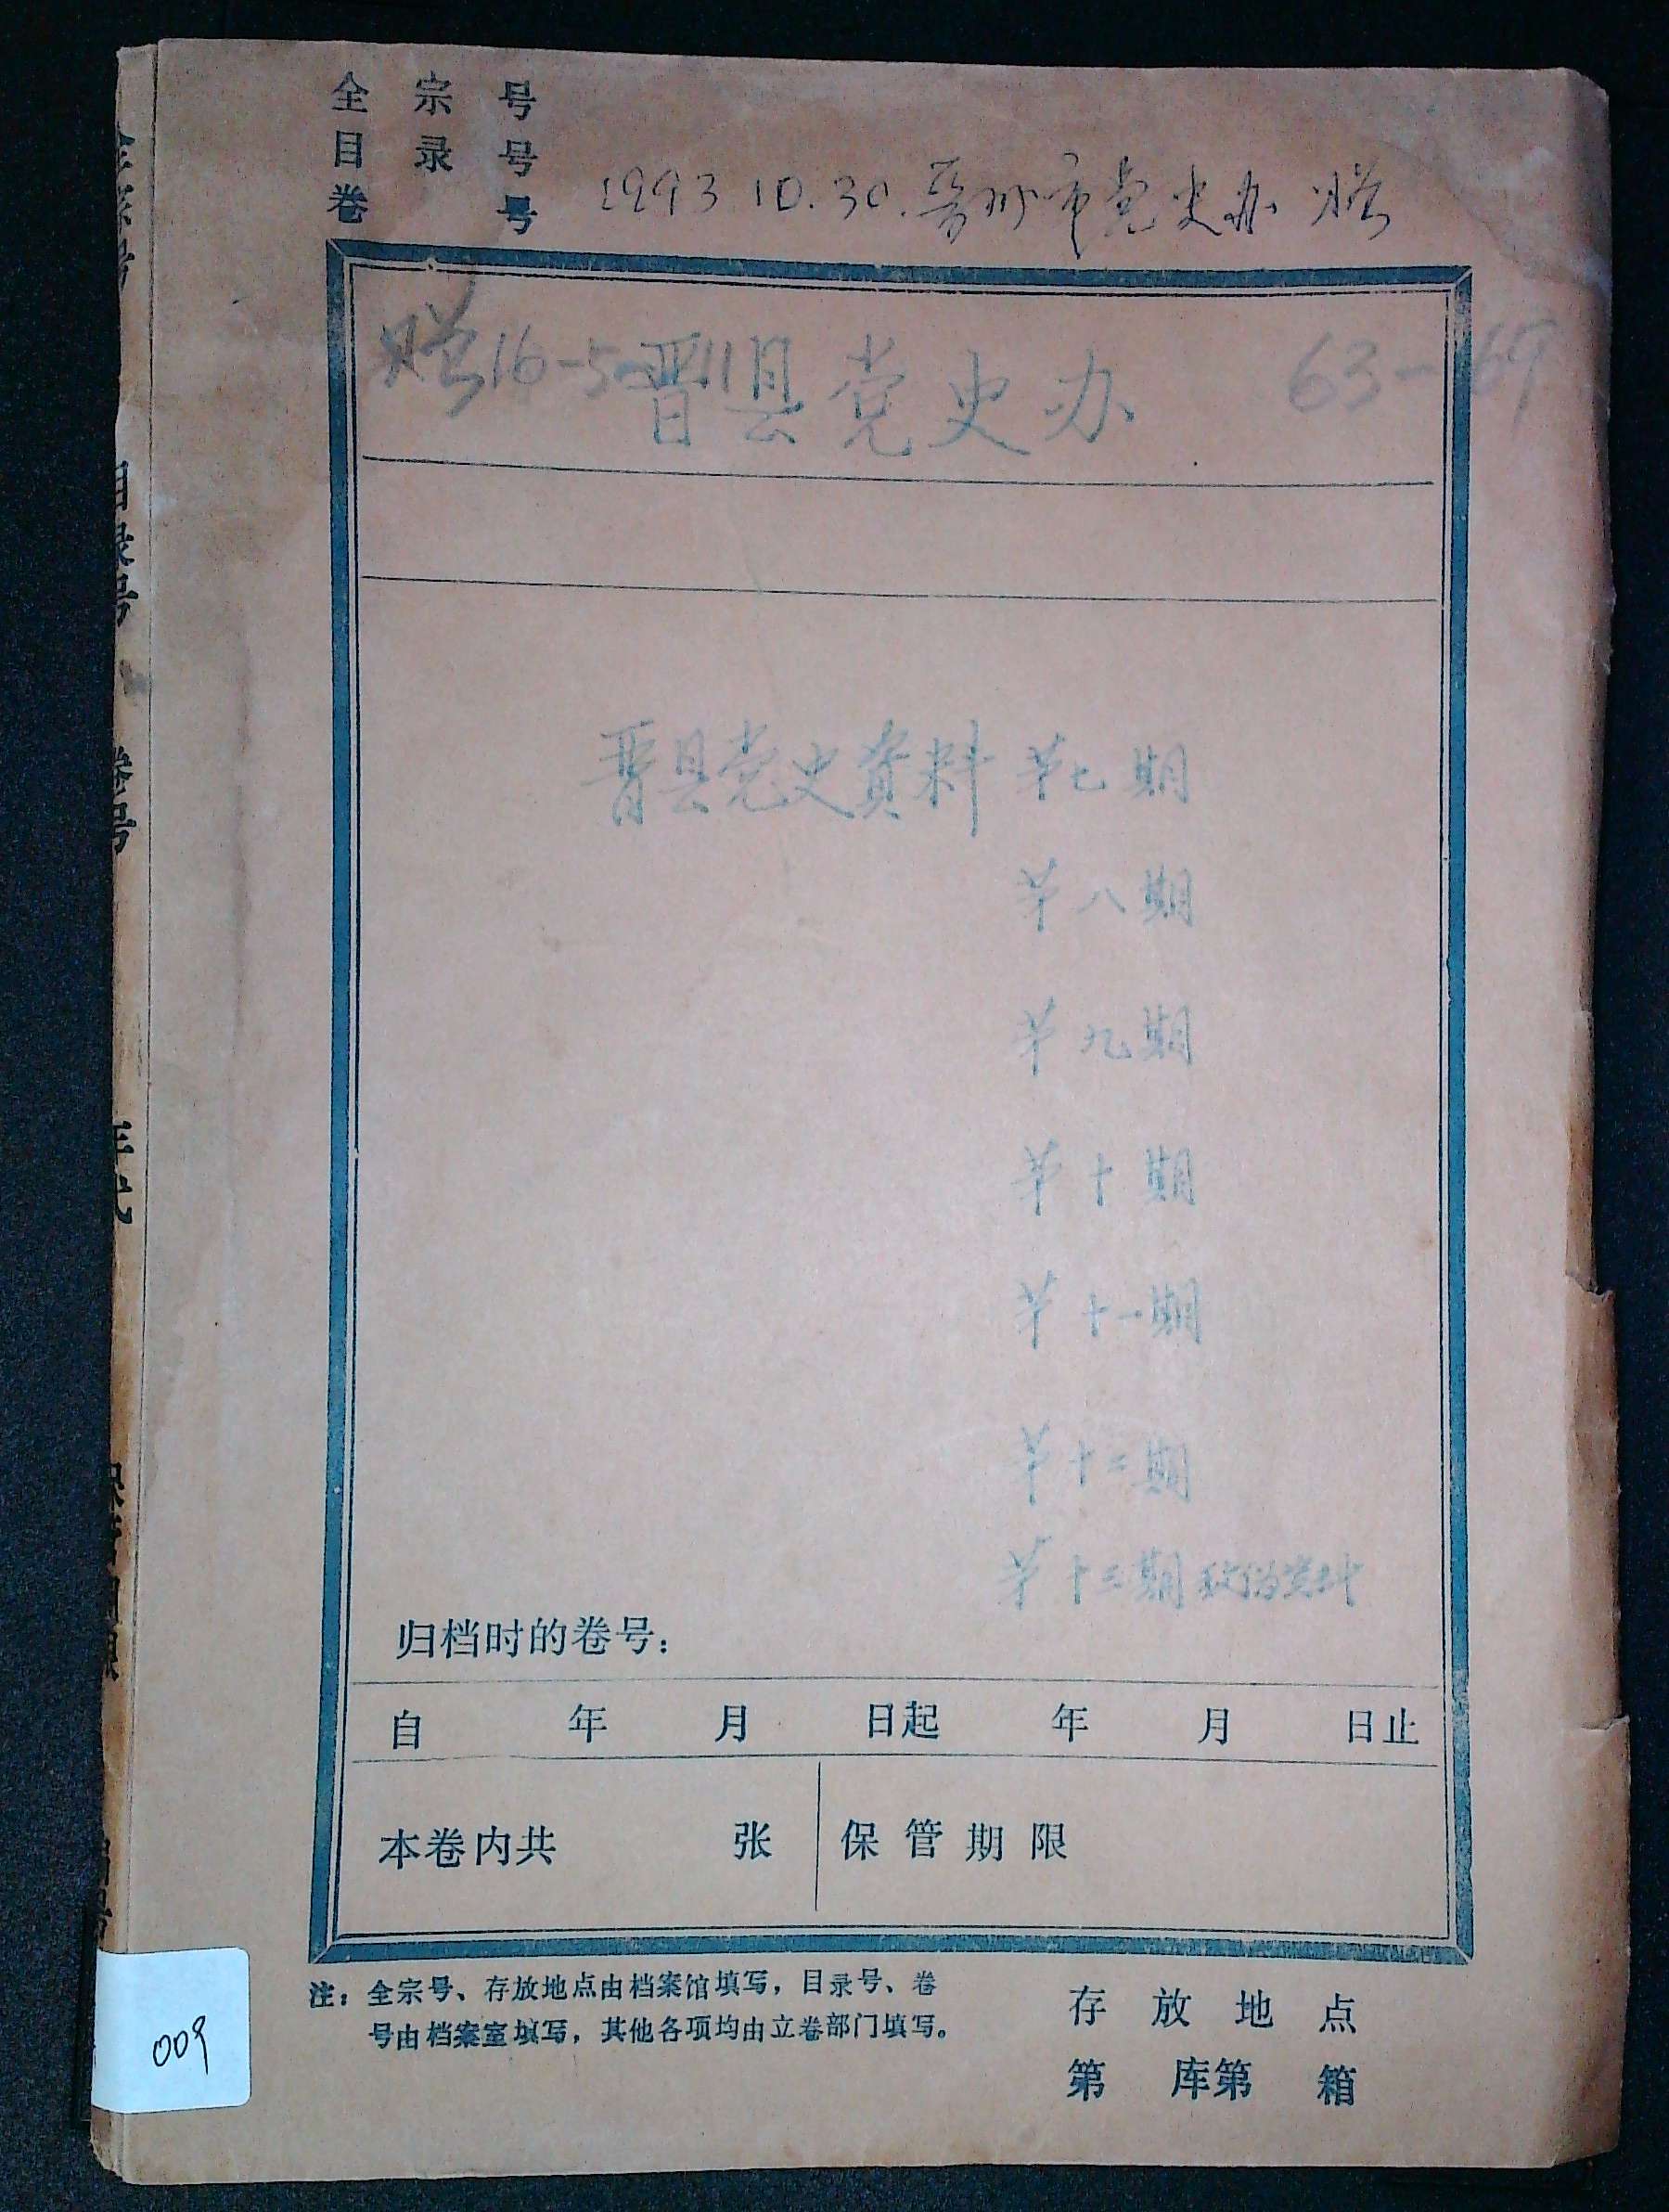 全宗号
目录号
卷号
1993.10.30.晋州市党史办 赠
赠16-5-11 63-69
晋县党史办
晋县党史资料 第七期
第八期
第九期
第十期
第十一期
第十二期
第十三期 敌伪资料
归档时的卷号：
自 年 月 日起 年 月 日止
本卷内共 张 保管期限
注：全宗号、存放地点由档案馆填写，目录号、卷
号由档案室填写，其他各项均由立卷部门填写。
存放地点
第 库第 箱
009
目录号
卷号